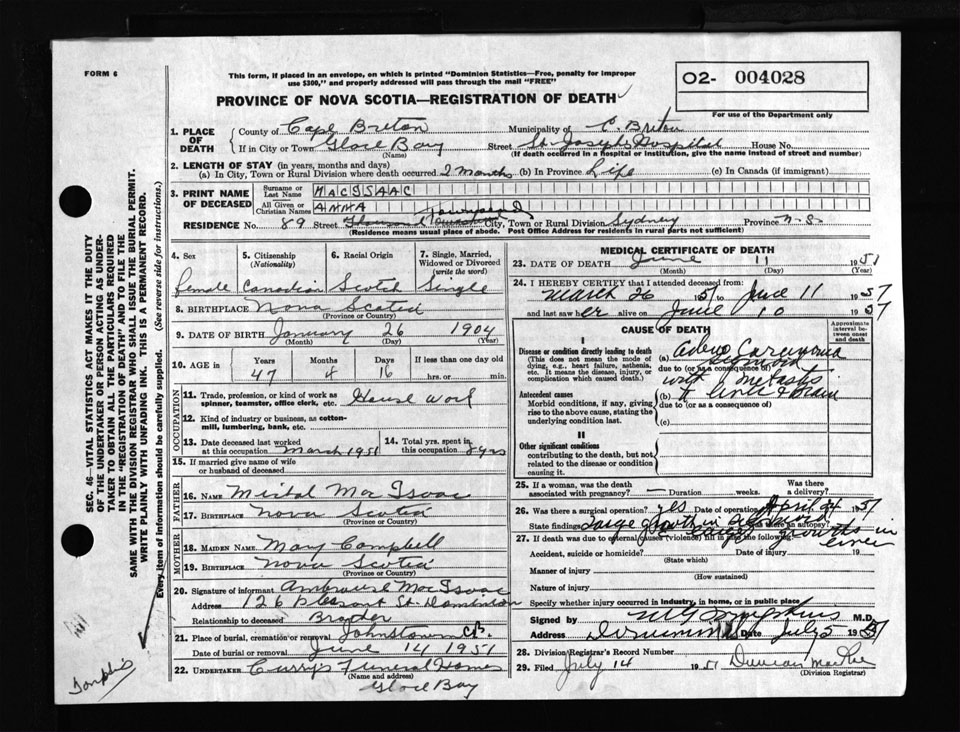 FORM 6
This form, if placed in an envelope, on which is printed "Dominion Statistics—Free, penalty for improper
use $300," and properly addressed will pass through the mail "FREE"
O2- 004028
For use of the Department only
PROVINCE OF NOVA SCOTIA—REGISTRATION OF DEATH
1. PLACE OF DEATH
County of Cape Breton Municipality of C. Breton
If in City or Town Glace Bay Street St. Joseph's Hospital House No.
(Name) (If death occurred in a hospital or institution, give the name instead of street and number)
2. LENGTH OF STAY (in years, months and days)
(a) In City, Town or Rural Division where death occurred 2 months (b) In Province Life (c) In Canada (if immigrant)
3. PRINT NAME OF DECEASED
Surname or Last Name MACISAAC
All Given or Christian Names ANNA
Townsend
RESIDENCE No. 89 Street City, Town or Rural Division Sydney Province N.S.
(Residence means usual place of abode. Post Office Address for residents in rural parts not sufficient)
4. Sex
female
5. Citizenship (Nationality)
Canadian
6. Racial Origin
Scotch
7. Single, Married, Widowed or Divorced (write the word)
Single
8. BIRTHPLACE Nova Scotia
(Province or Country)
9. DATE OF BIRTH January 26 1904
(Month) (Day) (Year)
10. AGE Years Months Days If less than one day old
47 8 16 hrs. or min.
OCCUPATION
11. Trade, profession, or kind of work as
spinner, teamster, office clerk, etc. House work
12. Kind of industry or business, as cotton-
mill, lumbering, bank, etc.
13. Date deceased last worked
at this occupation March 1951
14. Total yrs. spent in
this occupation 8 yrs
15. If married give name of wife
or husband of deceased
FATHER
16. Name Mac Isaac
17. Birthplace Nova Scotia
(Province or Country)
MOTHER
18. Maiden Name Mary Campbell
19. Birthplace Nova Scotia
(Province or Country)
20. Signature of informant Mac Isaac
Address 126 Pleasant St.
Relationship to deceased Brother
21. Place of burial, cremation or removal Johnstown C.B.
Date of burial or removal June 14 1951
22. Undertaker Curry's Funeral Homes
(Name and address)
Glace Bay
MEDICAL CERTIFICATE OF DEATH
23. DATE OF DEATH June 11 1951
(Month) (Day) (Year)
24. I HEREBY CERTIFY that I attended deceased from:
March 26 1951 to June 11 1951
and last saw her alive on June 10 1951
CAUSE OF DEATH
Approximate interval between onset and death
I
Disease or condition directly leading to death
(This does not mean the mode of
dying, e.g., heart failure, asthenia,
etc. It means the disease, injury, or
complication which caused death.)
(a) Adeno Carcinoma
due to (or as a consequence of)
with
Antecedent causes
Morbid conditions, if any, giving
rise to the above cause, stating the
underlying condition last.
(b) liver
due to (or as a consequence of)
(c)
II
Other significant conditions
contributing to the death, but not
related to the disease or condition
causing it.
25. If a woman, was the death Was there
associated with pregnancy? — Duration weeks. a delivery?
26. Was there a surgical operation? yes Date of operation April 24 1951
State findings Large growth in Was there an autopsy?
growths in
liver
27. If death was due to external causes (violence) fill in the following:
Accident, suicide or homicide? Date of injury 19
(State which)
Manner of injury
(How sustained)
Nature of injury
Specify whether injury occurred in industry, in home, or in public place
Signed by Tompkins M.D.
Address Date July 5 1951
28. Division Registrar's Record Number
29. Filed July 14 1951 Duncan
(Division Registrar)
SEC. 46—VITAL STATISTICS ACT MAKES IT THE DUTY
OF THE UNDERTAKER OR PERSON ACTING AS UNDER-
TAKER TO OBTAIN ALL THE PARTICULARS REQUIRED
IN THE "REGISTRATION OF DEATH" AND TO FILE THE
SAME WITH THE DIVISION REGISTRAR WHO SHALL ISSUE THE BURIAL PERMIT.
WRITE PLAINLY WITH UNFADING INK. THIS IS A PERMANENT RECORD.
Every item of information should be carefully supplied. (See reverse side for instructions.)
Tompkins